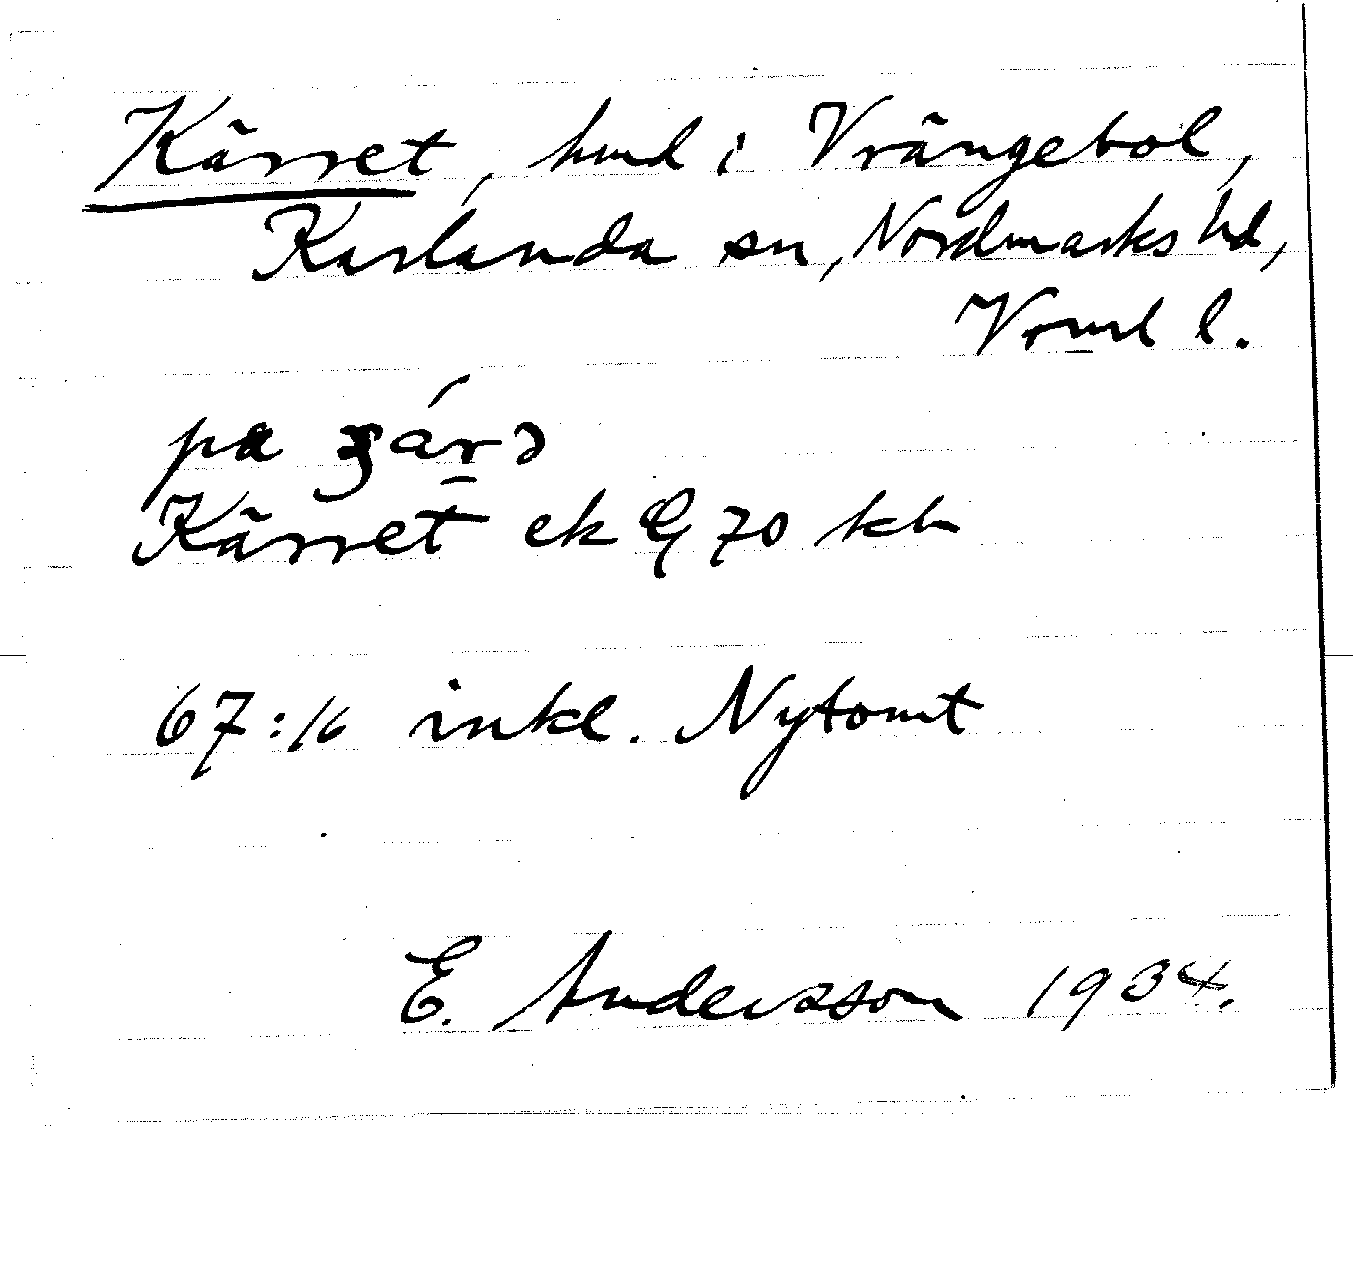 Kärret, hmd i Vrängebol,
Karlanda sn, Nordmarks hd,
Vrml l.
pa
Kärret ek 70 kbr
67:16 inkl. Nytomt
E. Andersson 1934.